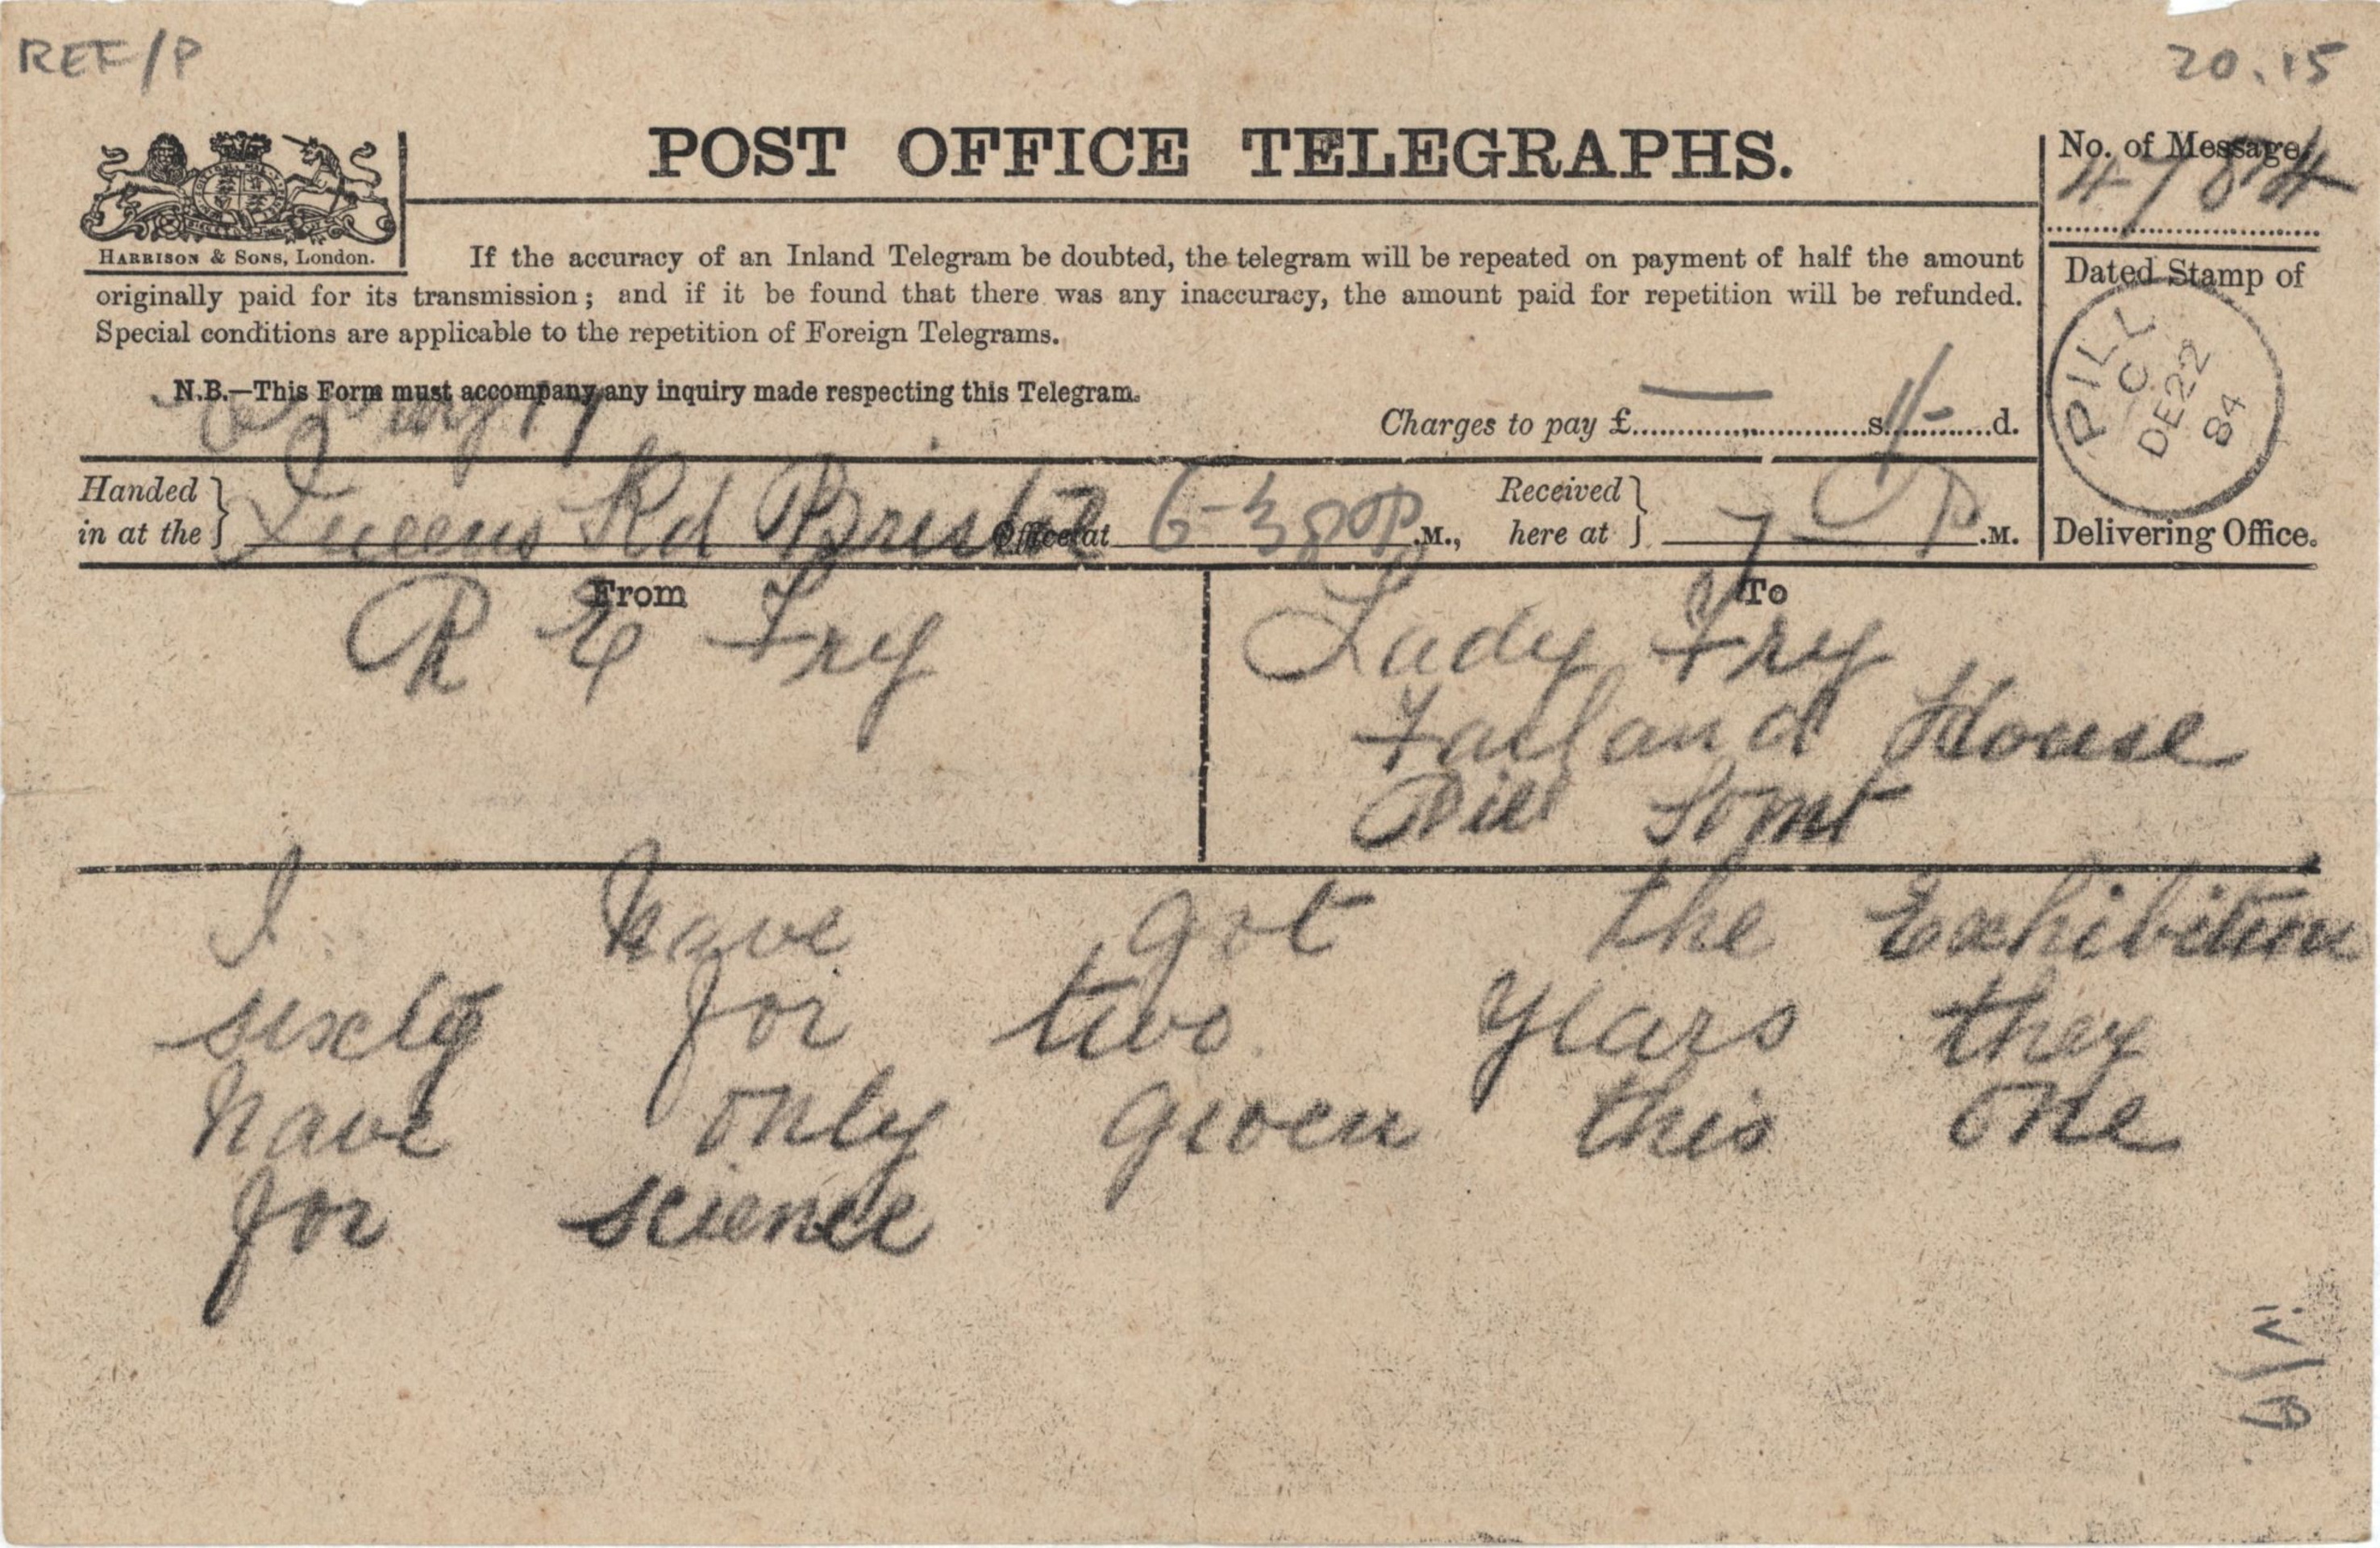 REF/P
20.15
POST OFFICE TELEGRAPHS.
No. of Message
HARRISON & SONS, London.
If the accuracy of an Inland Telegram be doubted, the telegram will be repeated on payment of half the amount
originally paid for its transmission; and if it be found that there was any inaccuracy, the amount paid for repetition will be refunded.
Special conditions are applicable to the repetition of Foreign Telegrams.
Dated Stamp of
PILL
C
DE 22
84
Delivering Office.
N.B.—This Form must accompany any inquiry made respecting this Telegram.
Charges to pay £ s. d.
Handed in at the } Queens Rd Bristol Office at 6-38 P.M., Received here at } 7 P.M.
From
R E Fry
To
Lady Fry
Failand House
Pill Somt
I have got the Exhibition
sixty for two years they
have only given this one
for science